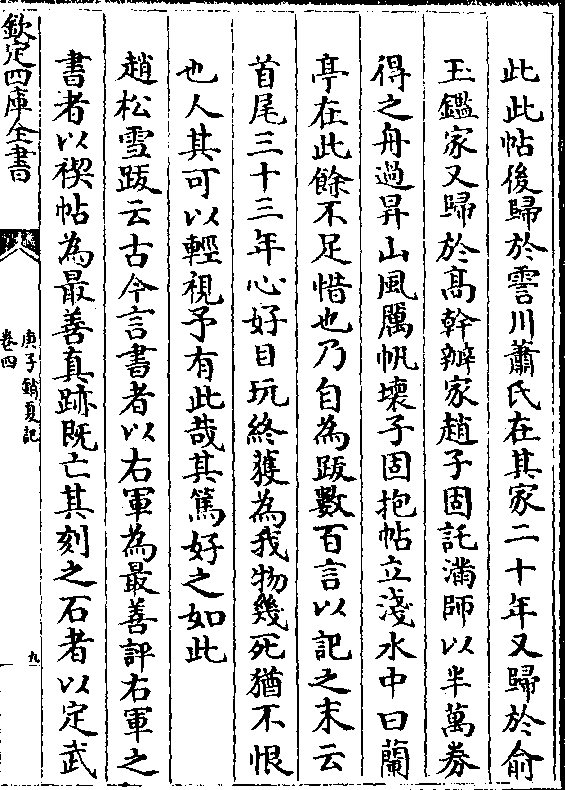 此此帖後歸於霅川蕭氏在其家二十年又歸於俞
玉鑑家又歸於髙幹辦家趙子固託滿師以半萬券
得之舟過昇山風厲帆壞子固抱帖立淺水中曰蘭
亭在此餘不足惜也乃自為跋數百言以記之末云
首尾三十三年心好目玩終獲為我物幾死猶不恨
也人其可以輕視予有此哉其篤好之如此
趙松雪跋云古今言書者以右軍為最善評右軍之
書者以禊帖為最善真跡既亡其刻之石者以定武
欽定四庫全書
庚子銷夏記
卷四
九